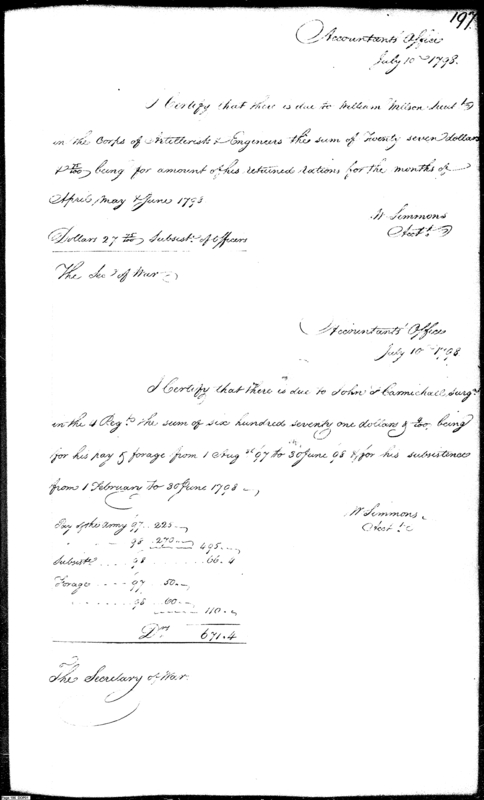 197
Accountants' Office
July 10th 1798.
I Certify that there is due to William Wilson Lieut
in the Corps of Artillerists & Engineers the sum of Twenty seven dollars
being for amount of his retained rations for the months of
April, May & June 1798
W Simmons
Acctt
Dollars 27 Subsistce of Officers
The Secy of War
Accountants' Office
July 10th 1798
I Certify that there is due to John F Carmichael Surgn
in the 4 Regt the sum of six hundred seventy one dollars & being
for his pay & forage from 1 Augst 97 to 30th June 98 & for his subsistence
from 1 February to 30 June 1798
W Simmons
Acctt
Pay of the army 97 225
98 270 495
Subsistce 98 66.4
Forage 97 50
98 60
110
Drs 671.4
The Secretary of War